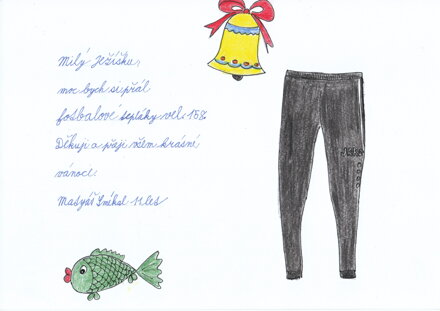 Milý Ježíšku,
moc bych si přál
fotbalové tepláky vel. 158
Děkuji a přeji všem krásné
vánoce.
Matyáš 11 let